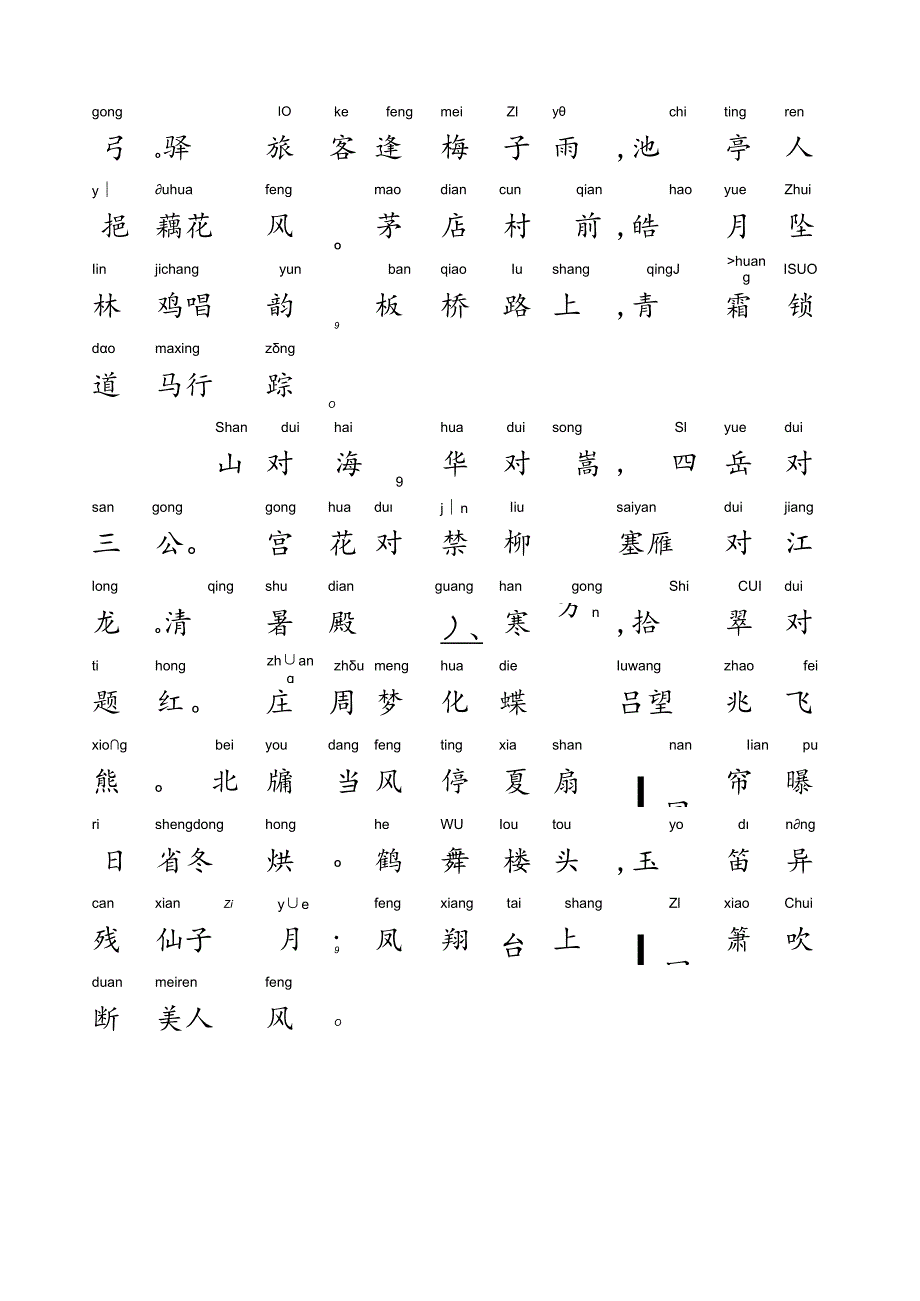 gong IO ke feng mei ZI yθ chi ting ren
弓。驿 旅 客 逢 梅 子 雨 ,池 亭 人
y｜ ∂uhua feng mao dian cun qian hao yue Zhui
挹 藕花 风 。 茅 店 村 前 ,皓 月 坠
Iin jichang yun ban qiao Iu shang qingJ >huang ISUO
林 鸡唱 韵 9 板 桥 路 上 ,青 霜 锁
dαo maxing zδng
道 马行 踪 O
Shan dui hai hua dui song SI yue dui
山 对 海 9 华 对 嵩 , 四 岳 对
san gong gong hua duı j｜n Iiu saiyan dui jiang
三 公。 宫 花 对 禁 柳 塞雁 对 江
long qing shu dian guang han gong Shi CUI dui
龙 。清 暑 殿 寒 n ,拾 翠 对
ti hong zh∪anɑ zhδu meng hua die Iuwang zhao fei
题 红。 庄 周 梦 化 蝶 吕望 兆 飞
xio∩g bei you dang feng ting xia shan nan Iian pu
熊 。 北 牖 当 风 停 夏 扇 帘 曝
ri shengdong hong he WU Iou tou yo dı n∂ng
日 省冬 烘 。 鹤 舞 楼 头 ,玉 笛 异
can xian Zi y∪e feng xiang tai shang ZI xiao Chui
残 仙子 月 ;9 凤 翔 台 上 箫 吹
duan meiren feng
断 美人 风 O